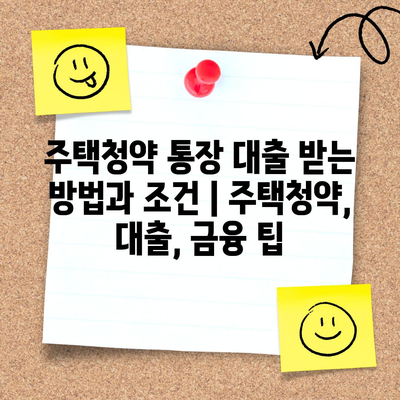 주택청약 통장 대출 받는
방법과 조건 | 주택청약,
대출, 금융 팁